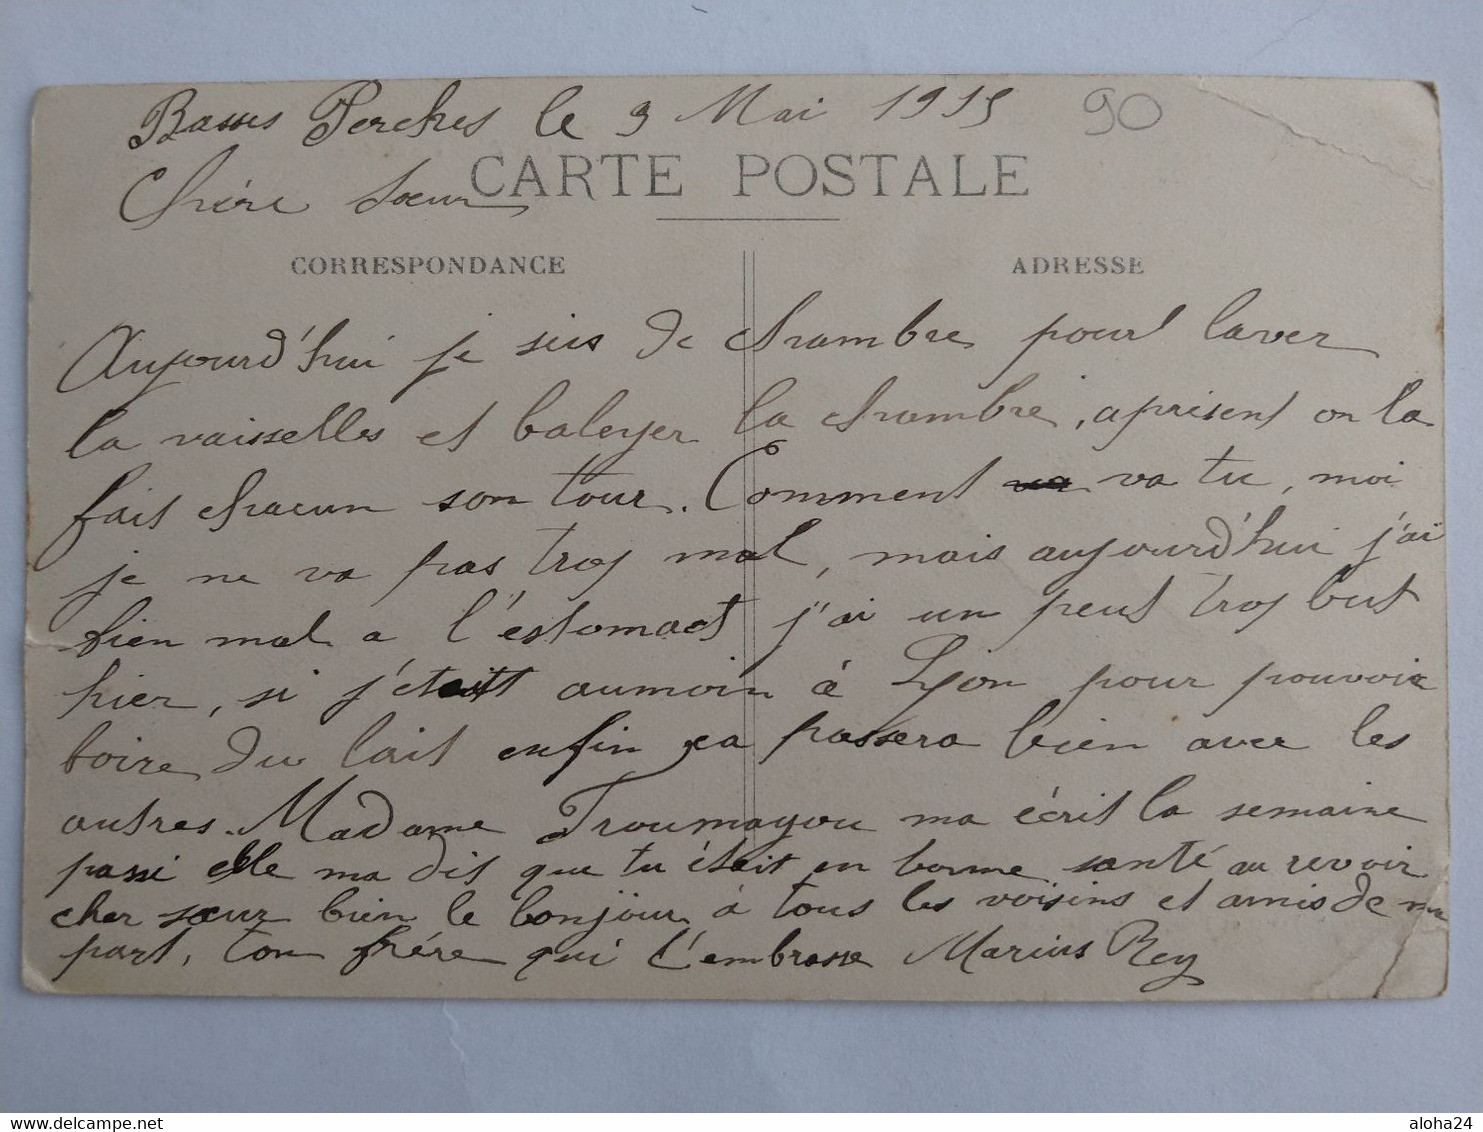 Basses Perches le 9 Mai 1915
90
CARTE POSTALE
Chère Sœur
CORRESPONDANCE
ADRESSE
Aujourd'hui je suis de chambre pour laver
la vaisselles et baleyer la chambre, aprisent on la
fait chacun son tour. Comment va tu, moi
je ne va pas trop mal, mais aujourd'hui j'ai
bien mal a l'estomact j'ai un peut trop but
hier, si j'était aumoin à Lyon pour pouvoir
boire du lait enfin ça passera bien avec les
autres. Madame Troumayou ma écrit la semaine
passi elle ma dit que tu était en bonne santé au revoir
cher sœur bien le bonjour à tous les voisins et amis de ma
part, ton frére qui t'embrasse Marius Rey
delcampe.net
aloha24